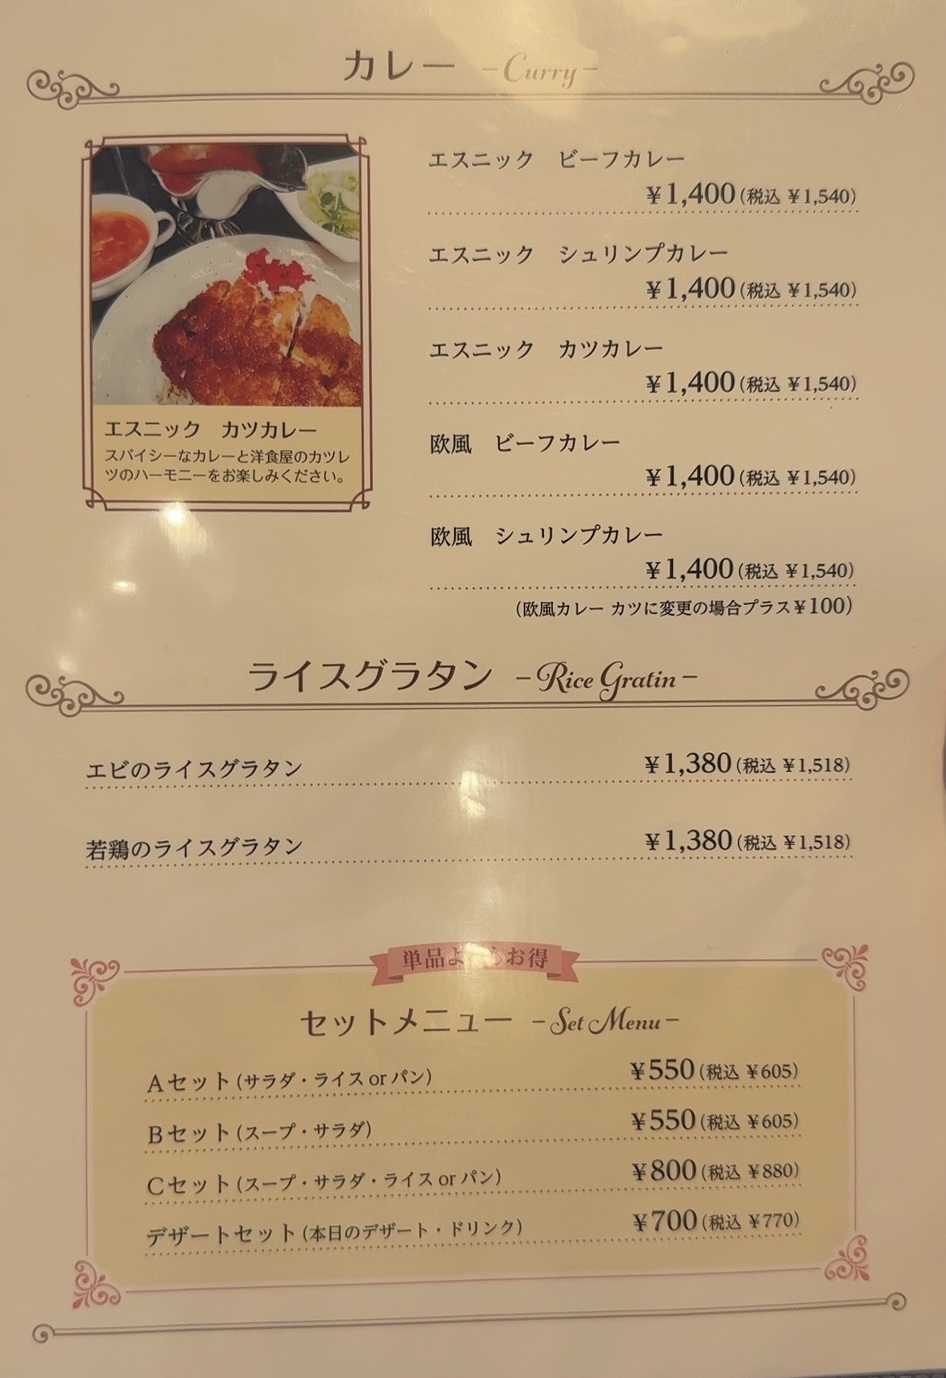 カレー －Curry－
エスニック　カツカレー
スパイシーなカレーと洋食屋のカツレ
ツのハーモニーをお楽しみください。
エスニック　ビーフカレー
¥1,400(税込 ¥1,540)
エスニック　シュリンプカレー
¥1,400(税込 ¥1,540)
エスニック　カツカレー
¥1,400(税込 ¥1,540)
欧風　ビーフカレー
¥1,400(税込 ¥1,540)
欧風　シュリンプカレー
¥1,400(税込 ¥1,540)
(欧風カレー カツに変更の場合プラス¥100)
ライスグラタン －Rice Gratin－
エビのライスグラタン ¥1,380(税込 ¥1,518)
若鶏のライスグラタン ¥1,380(税込 ¥1,518)
単品よりもお得
セットメニュー －Set Menu－
Aセット(サラダ・ライス or パン) ¥550(税込 ¥605)
Bセット(スープ・サラダ) ¥550(税込 ¥605)
Cセット(スープ・サラダ・ライス or パン) ¥800(税込 ¥880)
デザートセット(本日のデザート・ドリンク) ¥700(税込 ¥770)